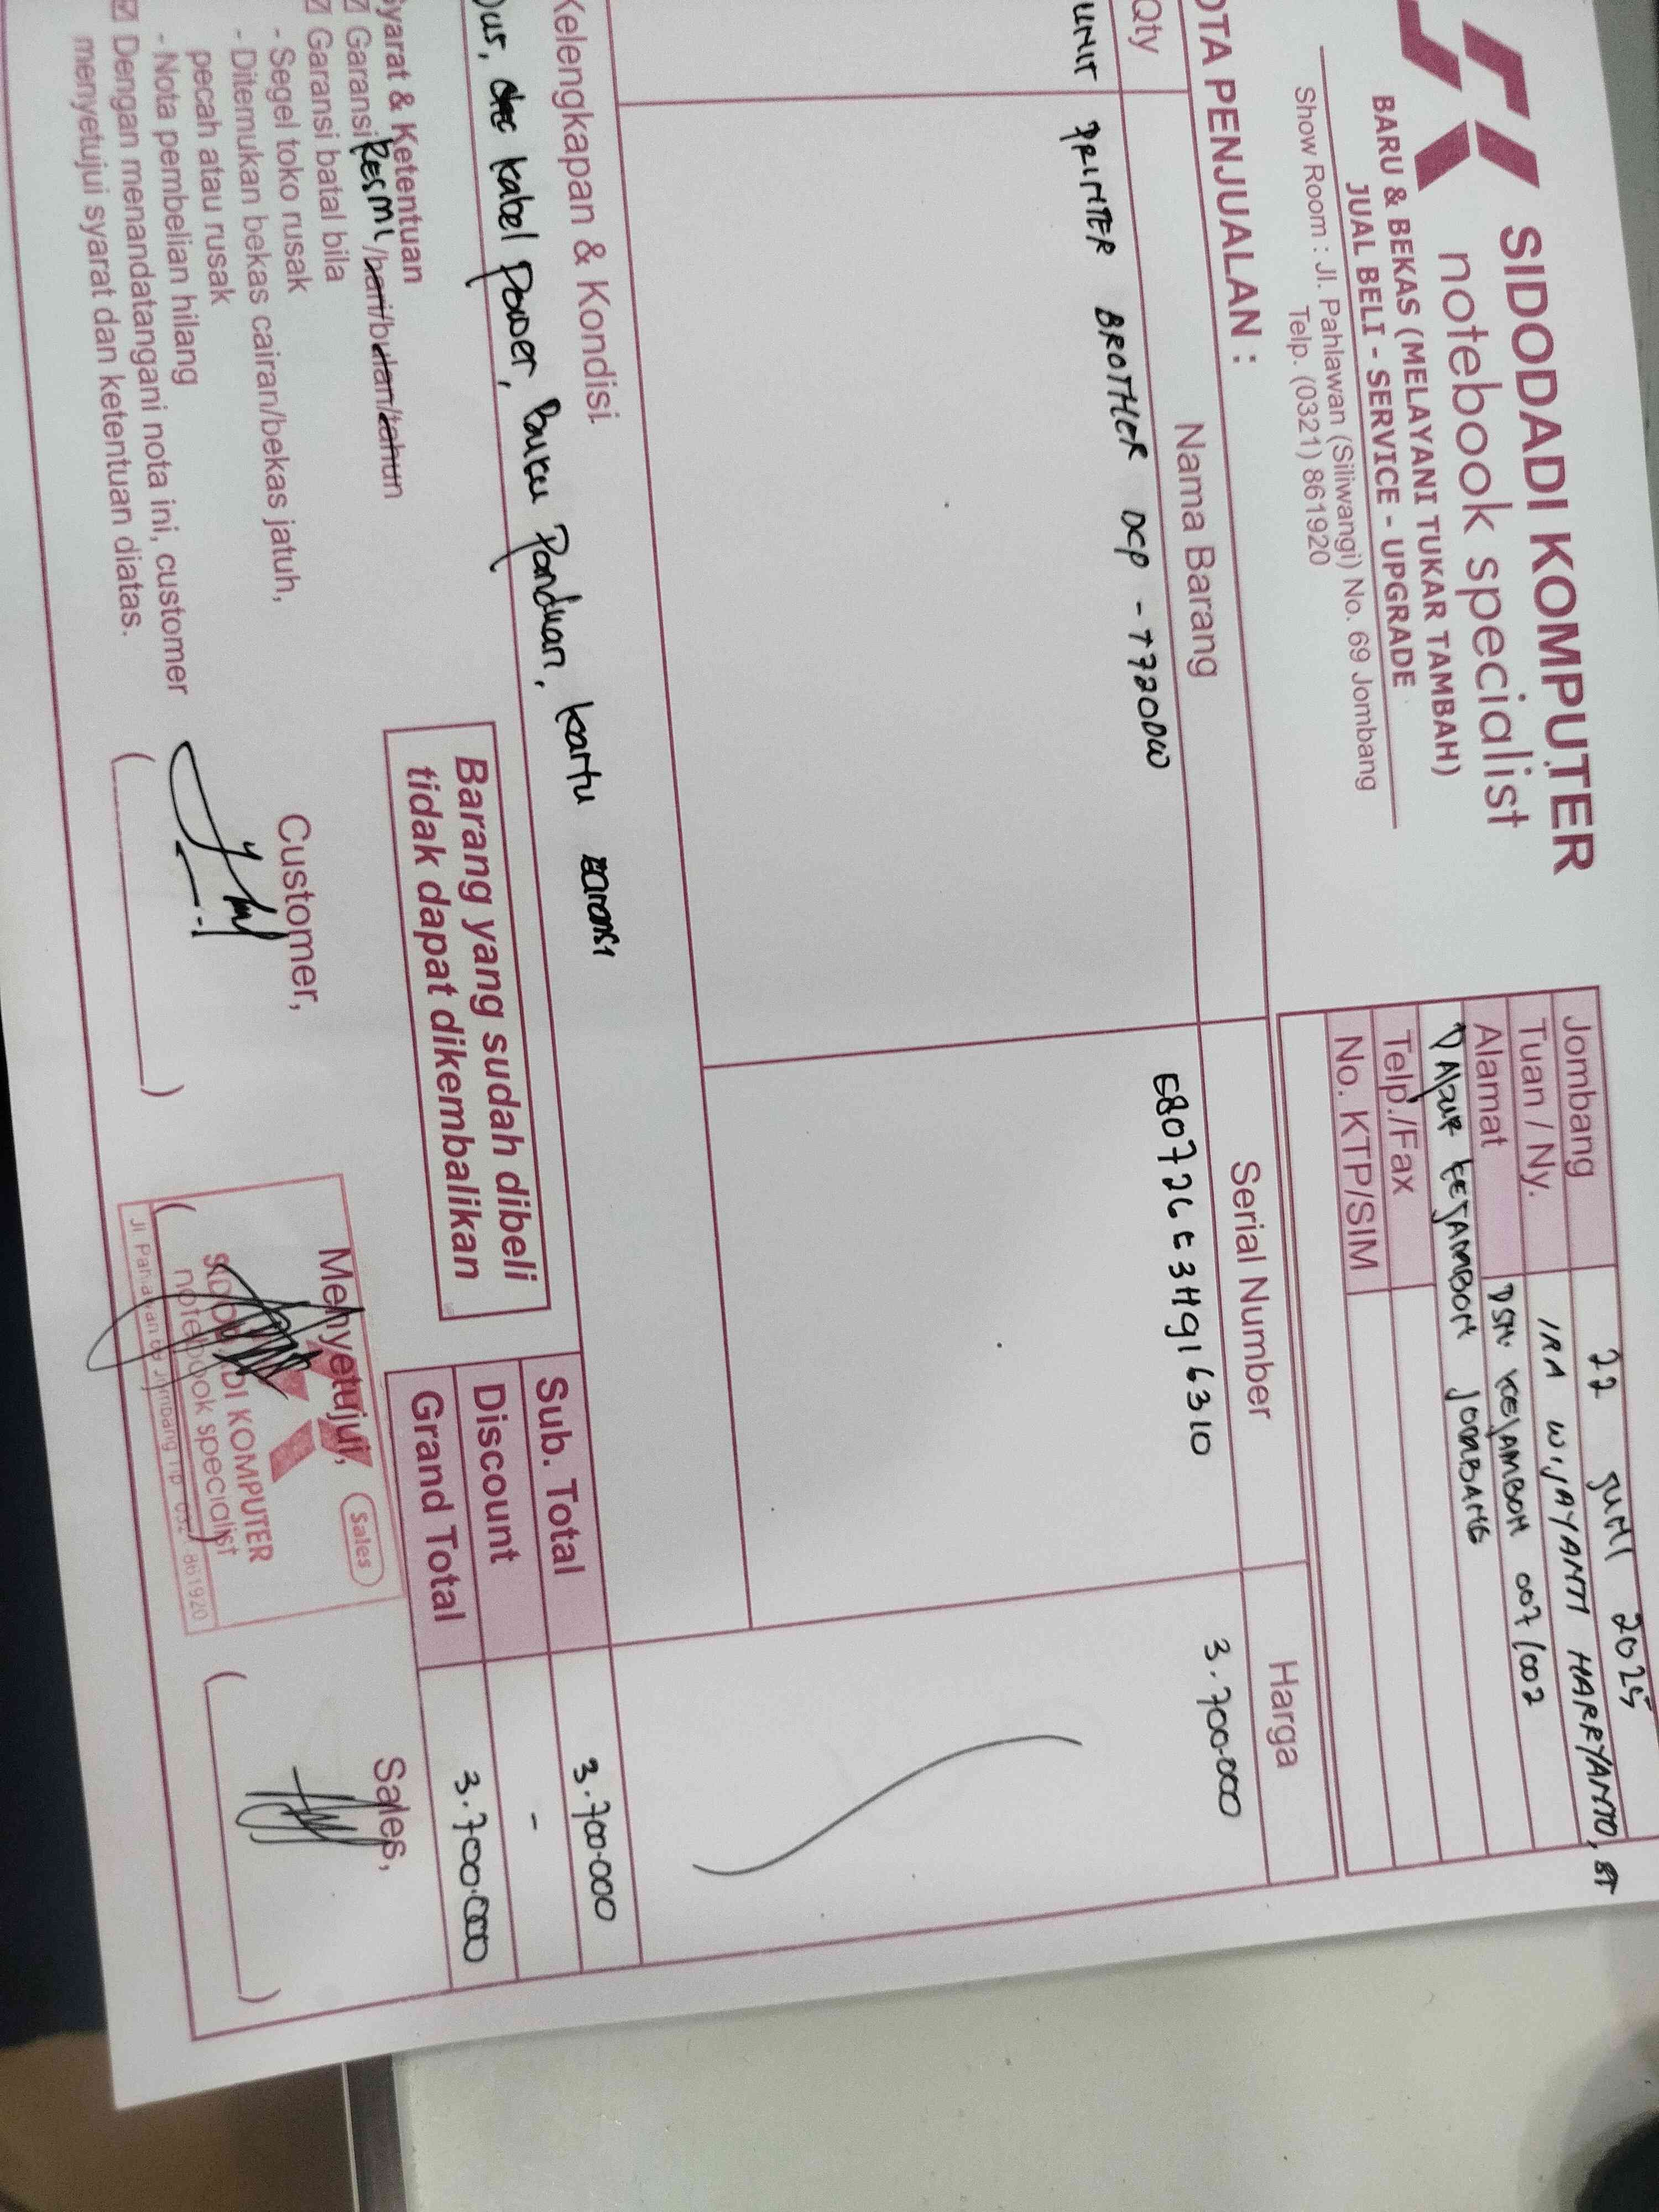 SIDODADI KOMPUTER
notebook specialist
BARU & BEKAS (MELAYANI TUKAR TAMBAH)
JUAL BELI - SERVICE - UPGRADE
Show Room : Jl. Pahlawan (Siliwangi) No. 69 Jombang
Telp. (0321) 861920
Jombang 22 JUNI 2025
Tuan / Ny. IRA WIJAYANTI HARRYANTO, ST
Alamat DSN KEJAMBON 007/002
KEJAMBON JOMBANG
Telp./Fax
No. KTP/SIM
OTA PENJUALAN :
Qty Nama Barang Serial Number Harga
UNIT PRINTER BROTHER DCP - T720DW E80726E3H916310 3.700.000
Kelengkapan & Kondisi
Dus, kabel power, Buku Panduan, kartu garansi
Sub. Total 3.700.000
Discount -
Grand Total 3.700.000
Barang yang sudah dibeli
tidak dapat dikembalikan
yarat & Ketentuan
Garansi Resmi /hari/bulan/tahun
Garansi batal bila
- Segel toko rusak
- Ditemukan bekas cairan/bekas jatuh,
pecah atau rusak
- Nota pembelian hilang
Dengan menandatangani nota ini, customer
menyetujui syarat dan ketentuan diatas.
Customer,
Menyetujui,
Sales,
Sales
SIDODADI KOMPUTER
notebook specialist
Jl Pahlawan 69 Jombang Tlp 0321 861920